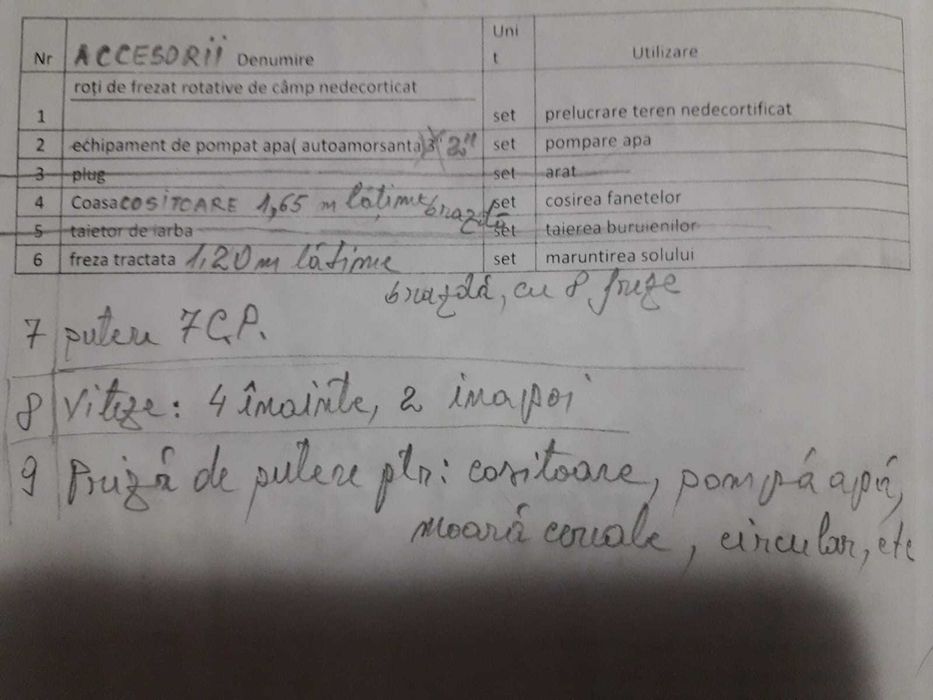 Nr ACCESORII Denumire Uni t Utilizare
roți de frezat rotative de câmp nedecorticat
1 set prelucrare teren nedecortificat
2 echipament de pompat apa( autoamorsanta)3" 2" set pompare apa
3 plug set arat
4 Coasa COSITOARE 1,65 m lățime brazdă set cosirea fanetelor
5 taietor de iarba set taierea buruienilor
6 freza tractata 1,20 m lățime set maruntirea solului
brazdă, cu 8 freze
7 putere 7 C.P.
8 Viteze: 4 înainte, 2 inapoi
9 Priză de putere ptr: cositoare, pompá apă,
moară cereale, circular, etc